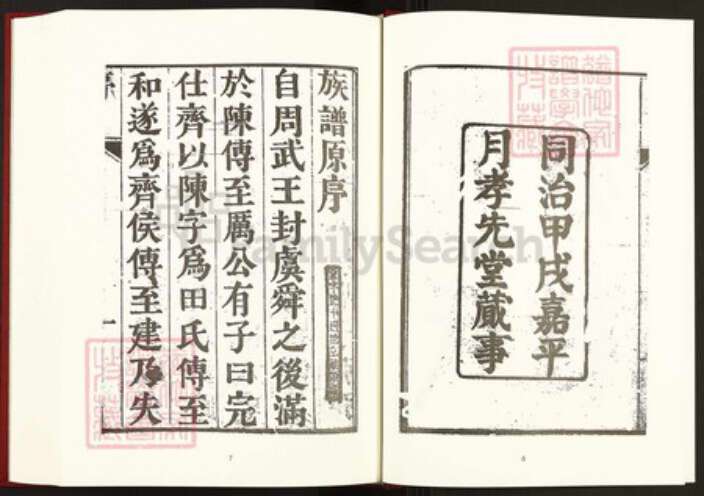 同治甲戌嘉平
月孝先堂蕆事
6
族譜原序
自周武王封虞舜之後滿
於陳傳至厲公有子曰完
仕齊以陳字爲田氏傳至
和遂爲齊侯傳至建乃失
一
7
FamilySearch